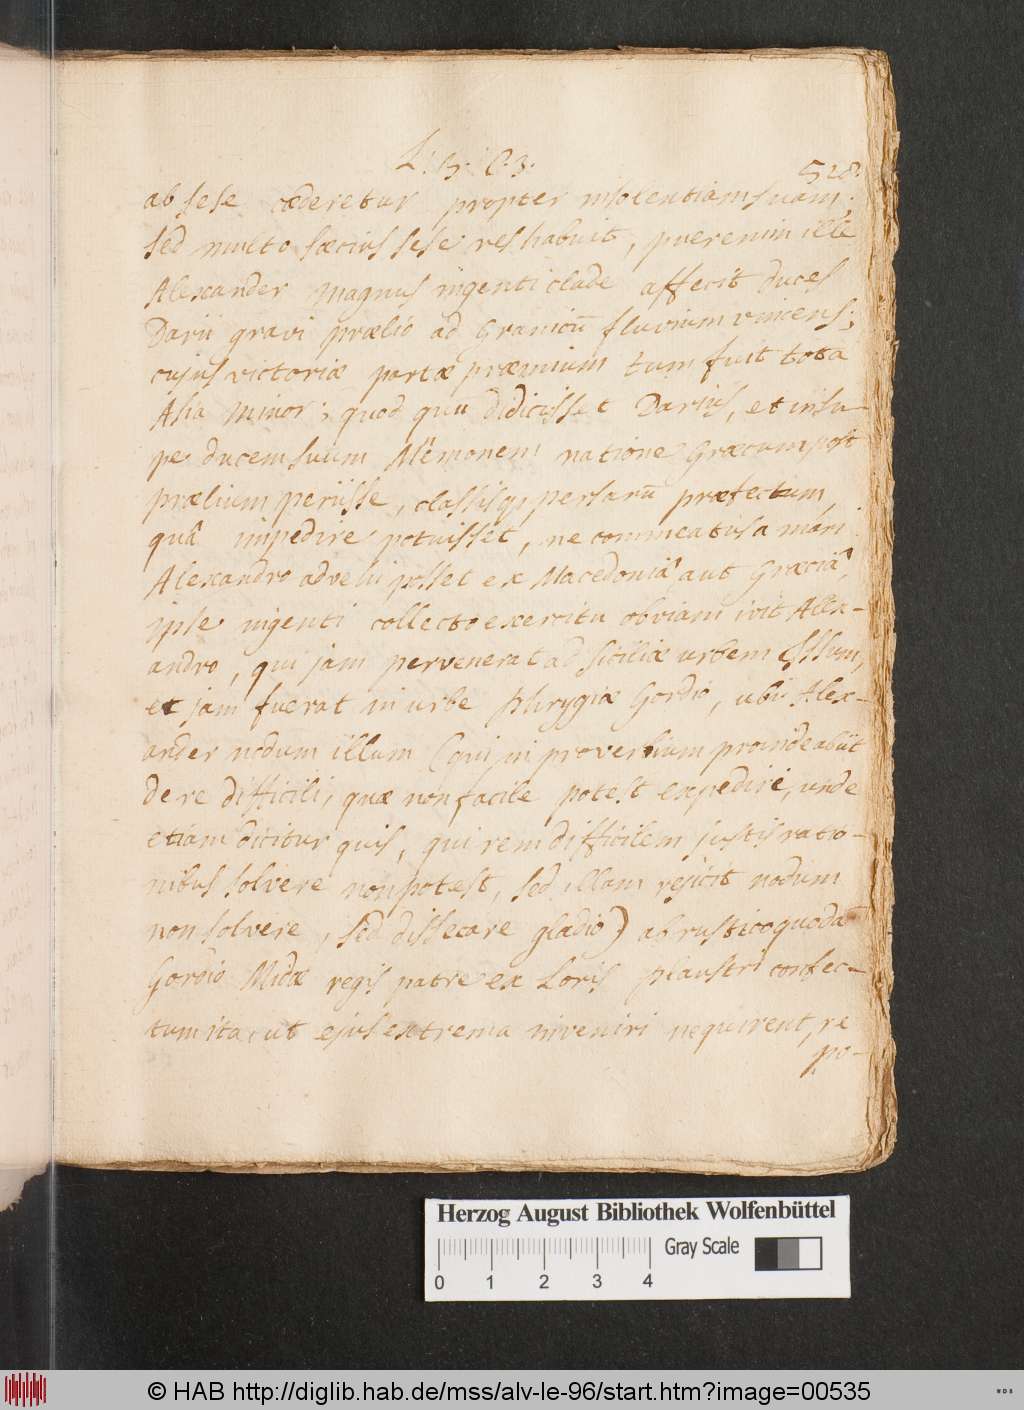 L. 3. C. 3.
528.
ab sese cæderetur propter insolentiam suam.
sed multo sæcius sese res habuit, puer enim ille
Alexander Magnus ingenti clade affecit duces
Darii gravi prælio ad Granicū fluvium vincens;
cujus victoriæ partæ præmium tum fuit tota
Asia Minor; quod quū didicisset Darius, et insu-
pe ducem suum Memonem natione Græcum post
prælium periisse, classisq; persarū præfectum,
quâ impedire potuisset, ne commeatus a mari
Alexandro advehi posset ex Macedoniâ aut Græciâ,
ipse ingenti collecto exercitu obviam ivit Alex-
andro, qui jam pervenerat ad siciliæ urbem Issum,
et jam fuerat in urbe phrygiæ Gordio, ubi Alex-
ander nodum illum (qui in proverbium proinde abiit
de re difficili, quæ non facile potest expediri, unde
etiam dicitur quis, qui rem difficilem justis ratio-
nibus solvere non potest, sed illam rejicit nodum
non solvere, sed dissecare gladio) ab rustico quodā
Gordio Midæ regis patre ex Loris plaustri confec-
tum ita, ut ejus extrema inveniri nequirent, re
po-
Herzog August Bibliothek Wolfenbüttel
Gray Scale
0 1 2 3 4
© HAB http://diglib.hab.de/mss/alv-le-96/start.htm?image=00535